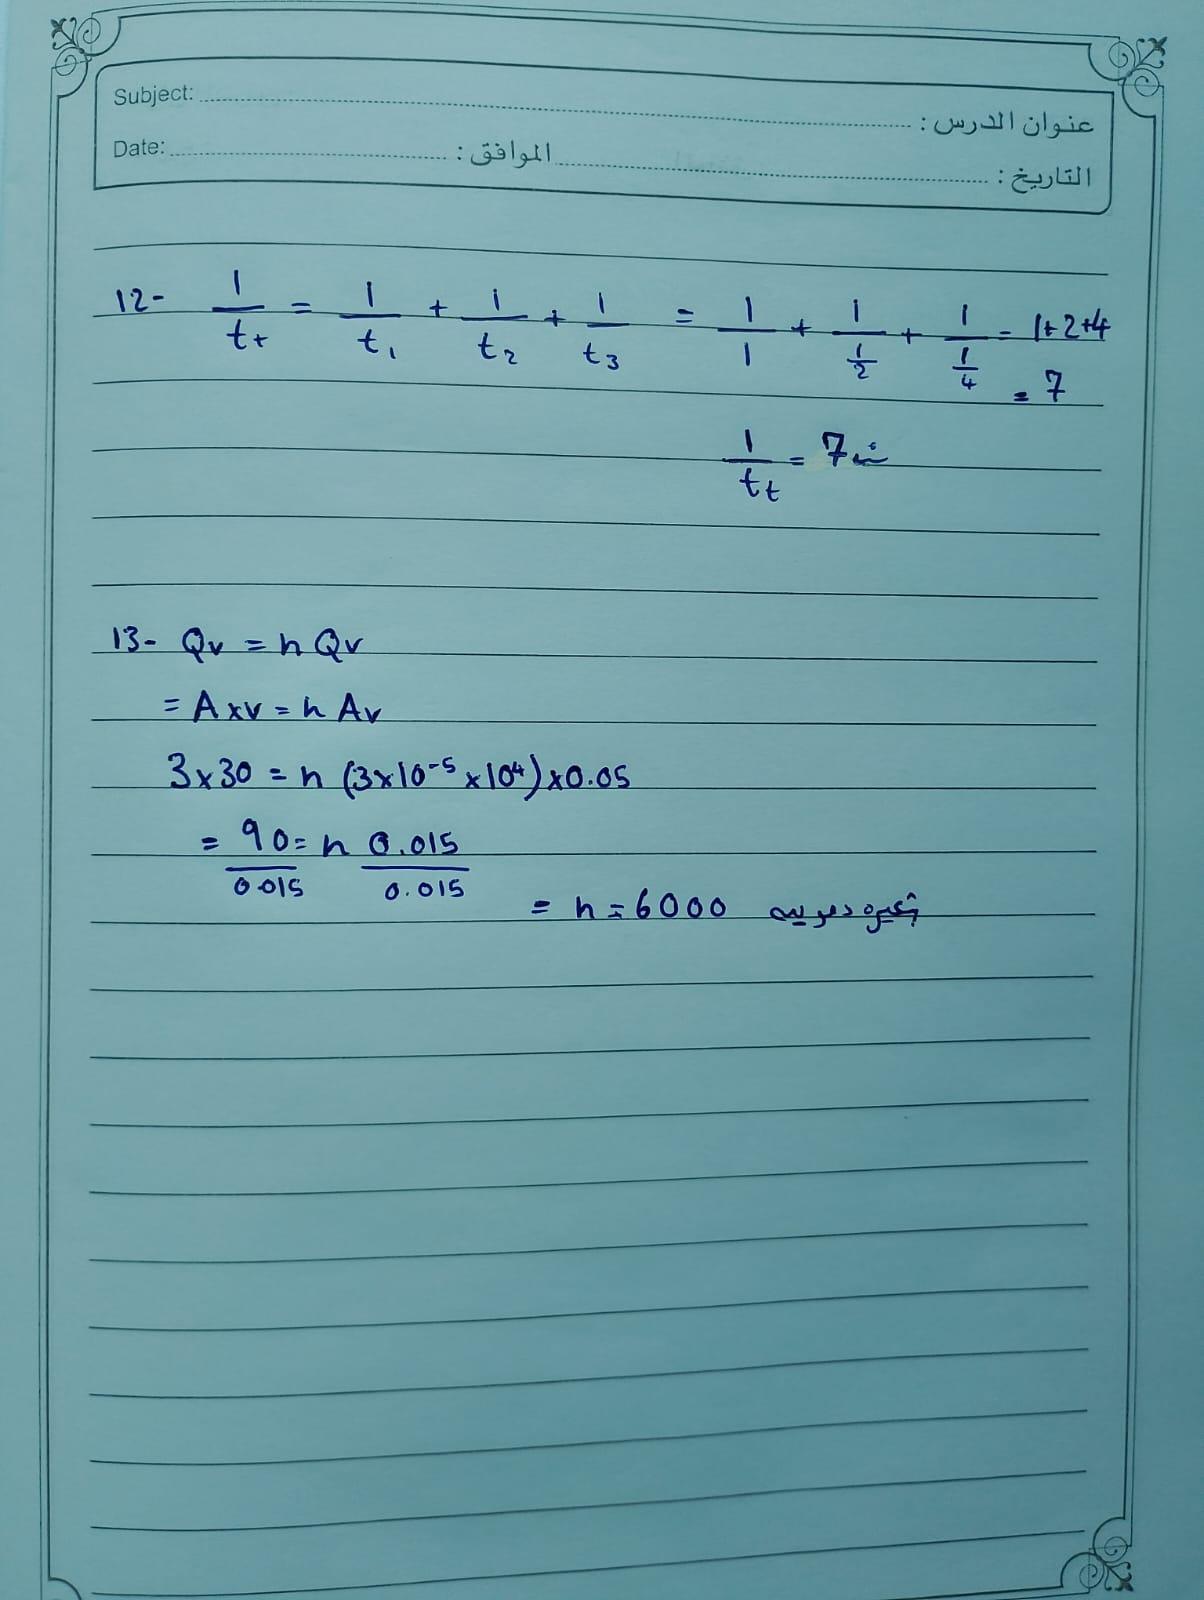 Subject: عنوان الدرس :
Date: الموافق : التاريخ :
12- 1/t_t = 1/t_1 + 1/t_2 + 1/t_3 = 1/1 + 1/(1/2) + 1/(1/4) = 1+2+4
= 7
1/t_t = 7
13- Qv = n Qv
= A x v = n Av
3 x 30 = n (3x10^-5 x 10^4) x 0.05
= 90/0.015 = n 0.015/0.015
= n = 6000